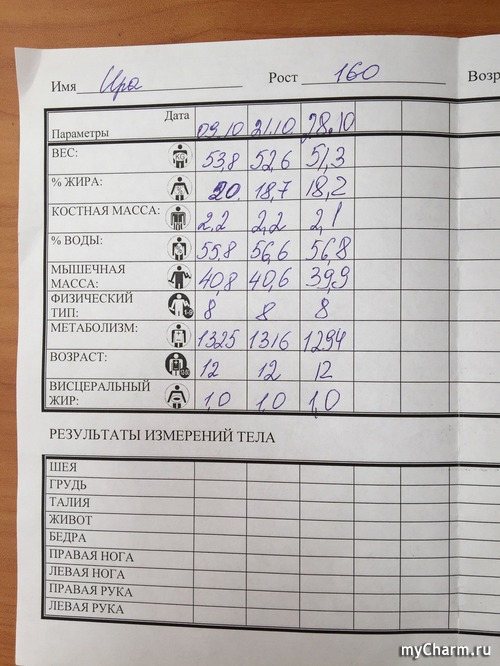 Имя Ира Рост 160 Возр
Дата
Параметры 09.10 21.10. 28.10
ВЕС: KG 53,8 52,6 51,3
% ЖИРА: % 20, 18,7 18,2
КОСТНАЯ МАССА: 2,2 2,2 2,1
% ВОДЫ: 55,8 56,6 56,8
МЫШЕЧНАЯ
МАССА: 40,8 40,6 39,9
ФИЗИЧЕСКИЙ
ТИП: 1-9 8 8 8
МЕТАБОЛИЗМ: 1325 1316 1294
ВОЗРАСТ: 12 12 12
ВИСЦЕРАЛЬНЫЙ
ЖИР: 1,0 1,0 1,0
РЕЗУЛЬТАТЫ ИЗМЕРЕНИЙ ТЕЛА
ШЕЯ
ГРУДЬ
ТАЛИЯ
ЖИВОТ
БЕДРА
ПРАВАЯ НОГА
ЛЕВАЯ НОГА
ПРАВАЯ РУКА
ЛЕВАЯ РУКА
myCharm.ru